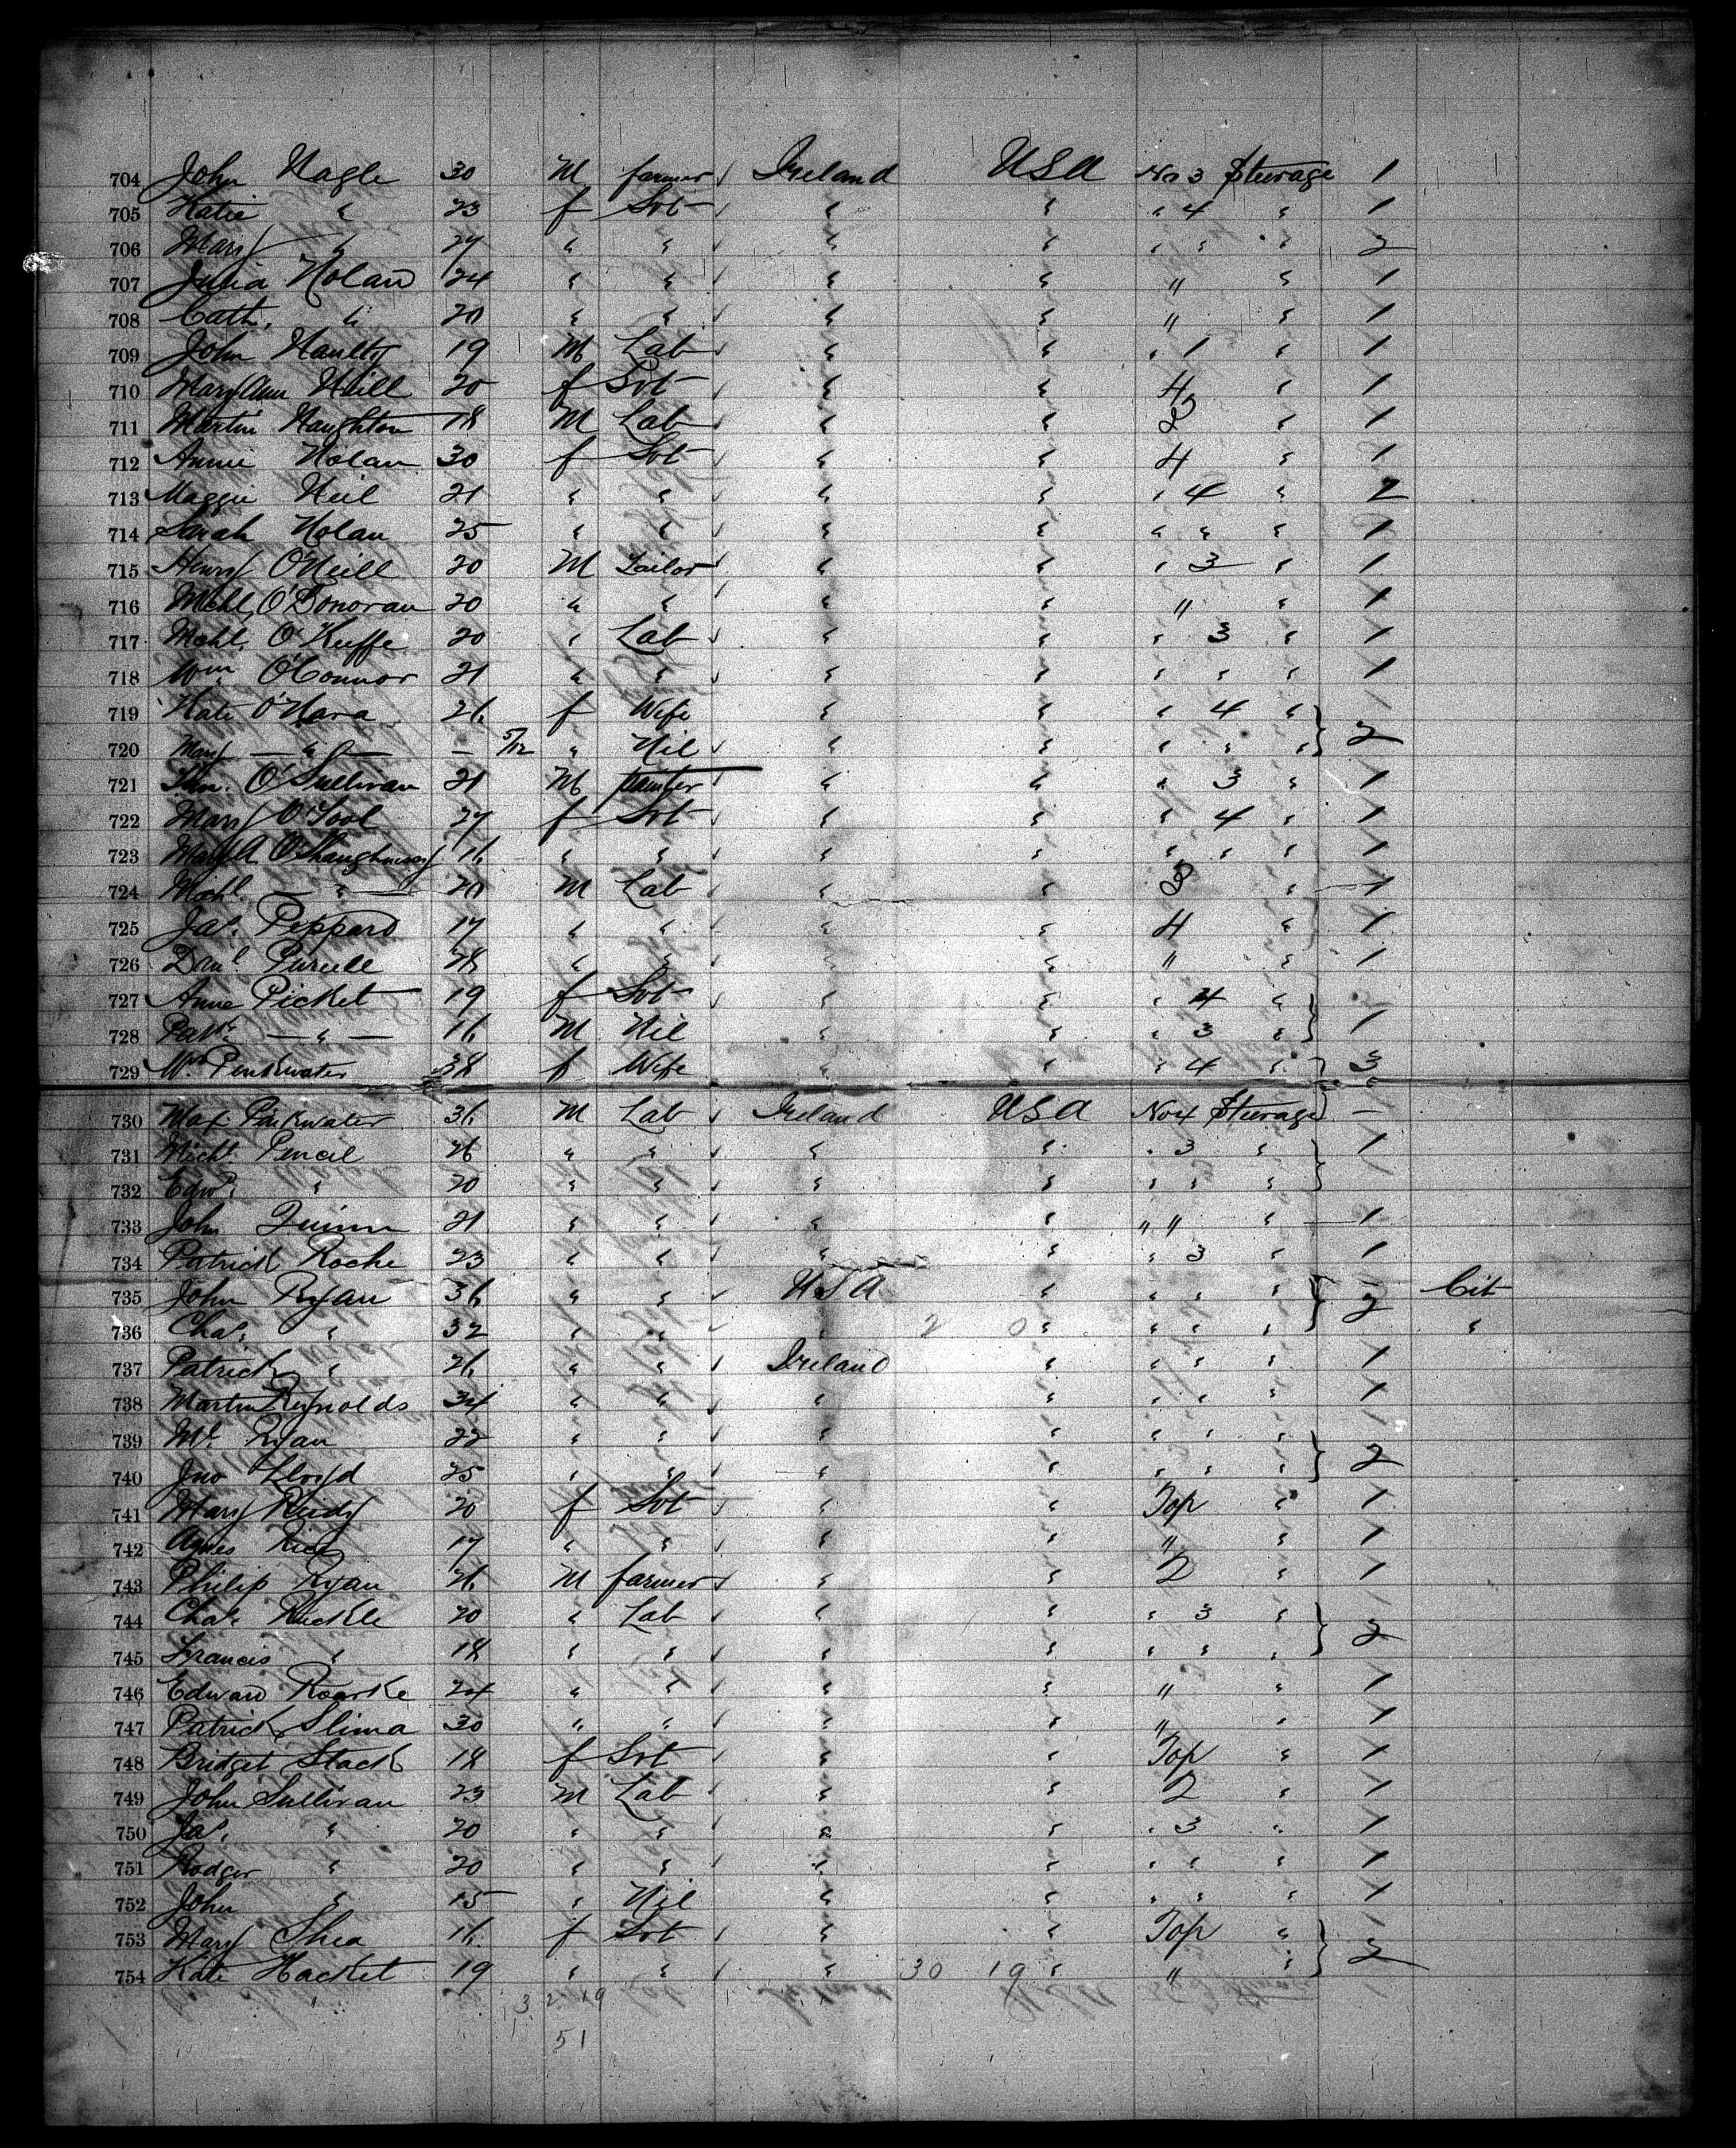 704 John Nagle 30 M farmer ✓ Ireland USA No 3 Steerage 1
705 Katie " 23 f Svt ✓ " " " 4 " 1
706 Mary " 27 " " ✓ " " " " " 2
707 Julia Nolan 24 " " ✓ " " " " 1
708 Cath. " 20 " " ✓ " " " " 1
709 John Naulty 19 M Lab ✓ " " " 1 " 1
710 Mary Ann Neill 20 f Svt ✓ " " 4 " 1
711 Martin Naughton 18 M Lab ✓ " " 3 " 1
712 Annie Nolan 30 f Svt ✓ " " 4 " 1
713 Maggie Neil 21 " " ✓ " " " 4 " 2
714 Sarah Nolan 25 " " ✓ " " " " " 1
715 Henry O'Neill 20 M Tailor ✓ " " " 3 " 1
716 Michl. O'Donovan 20 " " ✓ " " " " 1
717 Michl. O'Keeffe 20 " Lab ✓ " " " 3 " 1
718 Wm. O'Connor 21 " " ✓ " " " " " 1
719 Kate O'Hara 26 f Wife " " " 4 "
720 Mary — " — — 5/12 " Nil ✓ " " " " " } 2
721 O'Sullivan 21 M painter " " " 3 " 1
722 Mary O'Tool 27 f Svt ✓ " " " 4 " 1
723 Mary A O'Shaughnessy 16 " " ✓ " " " " " 1
724 Michl. — " — 20 M Lab ✓ " " 3 " 1
725 Jas. Peppard 17 " " ✓ " " 4 " 1
726 Danl. Purcell 18 " " ✓ " " " " 1
727 Anne Picket 19 f Svt ✓ " " " 4 "
728 Patk. — " — 16 M Nil ✓ " " " 3 " } 1
729 Pinkwater 38 f Wife " " " 4 " } 3
730 Max Pinkwater 36 M Lab ✓ Ireland USA No 4 Steerage —
731 Michl. Pencil 26 " " ✓ " " " 3 " 1
732 Edwd. " 20 " " ✓ " " " " " }
733 John Quinn 21 " " ✓ " " " " " 1
734 Patrick Roche 23 " " ✓ " " " 3 " 1
735 John Ryan 36 " " ✓ USA " " " " } 2 Cit
736 Chas. " 32 " " ✓ " 2 0 " " " " "
737 Patrick " 26 " " ✓ Ireland " " " " 1
738 Martin Reynolds 34 " " ✓ " " " " " 1
739 Ml. Ryan 22 " " ✓ " " " " "
740 Jno Lloyd 25 " " ✓ " " " " " } 2
741 Mary Reidy 20 f Svt ✓ " " Top " 1
742 Agnes Rice 17 " " ✓ " " " " 1
743 Philip Ryan 26 M farmer ✓ " " 2 " 1
744 Chas. Ruckle 20 " Lab ✓ " " " 3 "
745 Francis " 18 " " ✓ " " " " " } 2
746 Edward Roarke 24 " " ✓ " " " " 1
747 Patrick Slima 30 " " ✓ " " " " 1
748 Bridget Stack 18 f Svt ✓ " " Top " 1
749 John Sullivan 23 M Lab ✓ " " 2 " 1
750 Jas. " 20 " " ✓ " " " 3 " 1
751 Rodger " 20 " " ✓ " " " " " 1
752 John " 15 " Nil " " " " " 1
753 Mary Shea 16 f Svt ✓ " " Top "
754 Kate Hacket 19 " " ✓ " 30 19 " " " } 2
3 2 19
51